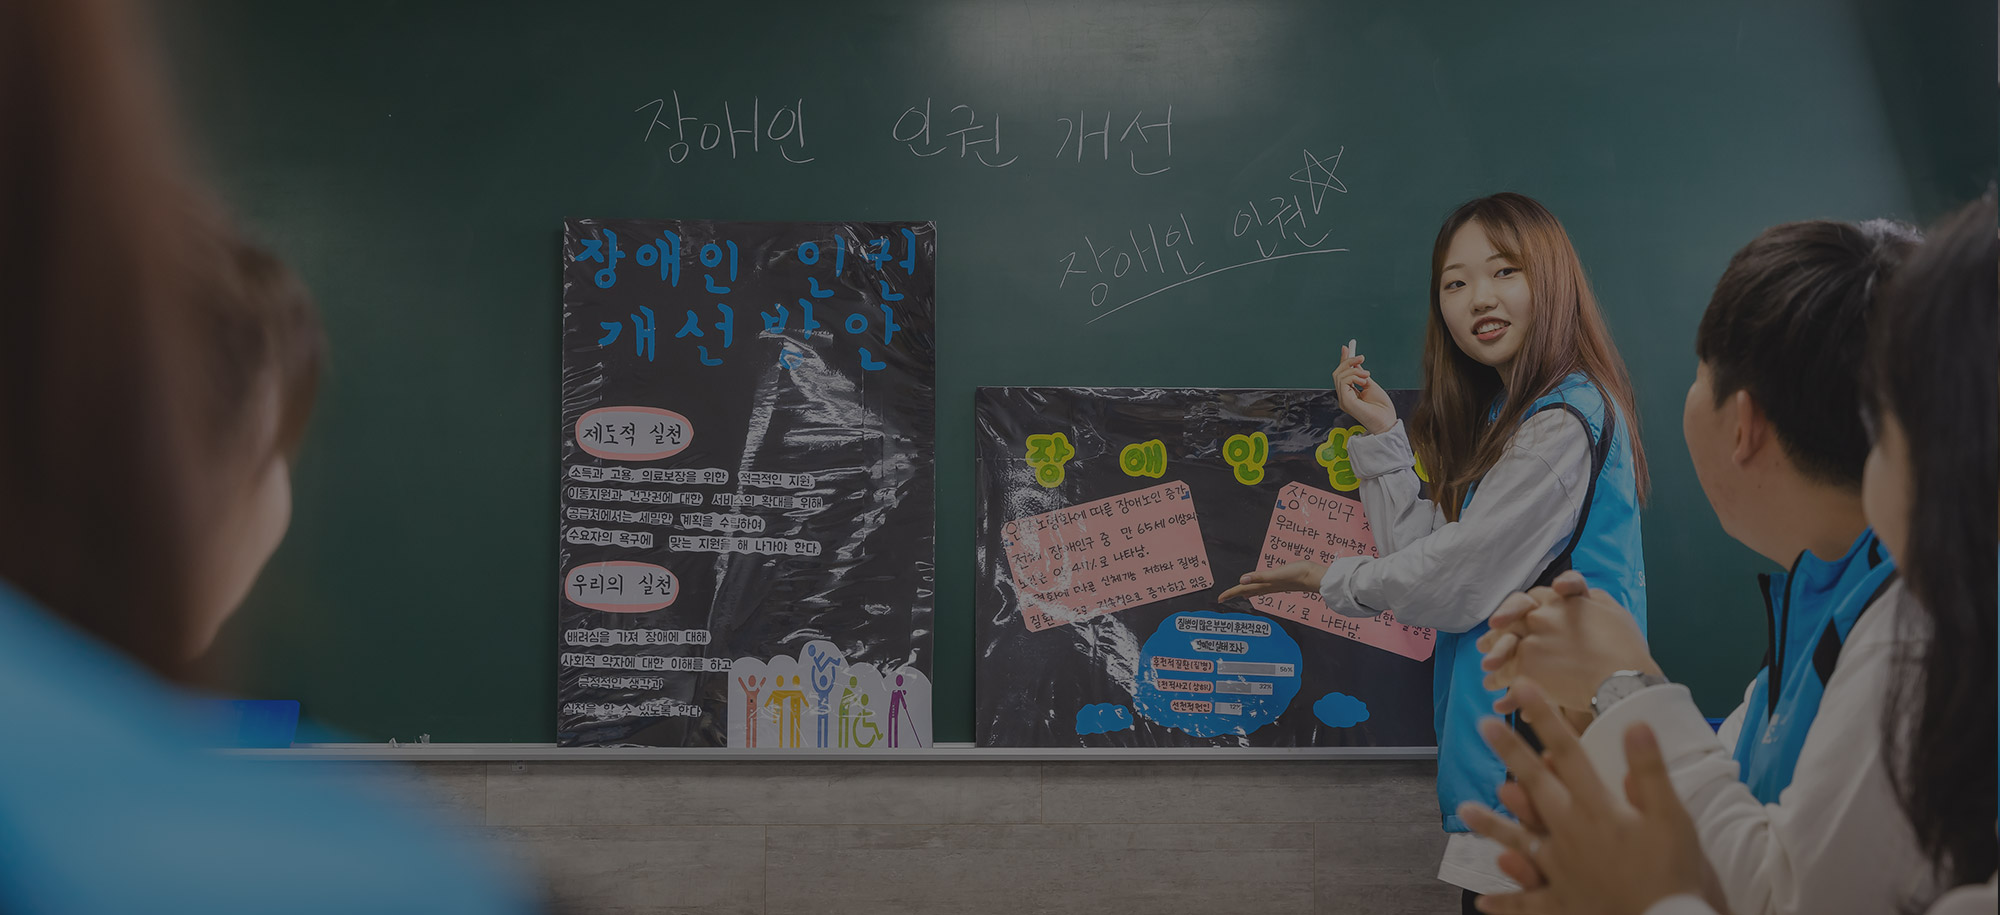 장애인 인권 개선
장애인 인권
장애인 인권
개선방안
제도적 실천
소득과 고용, 의료보장을 위한 적극적인 지원,
이동지원과 건강권에 대한 서비스의 확대를 위해
공급처에서는 세밀한 계획을 수립하여
수요자의 욕구에 맞는 지원을 해 나가야 한다.
우리의 실천
배려심을 가져 장애에 대해
사회적 약자에 대한 이해를 하고
긍정적인 생각과
실천을 할 수 있도록 한다
장애인 실
인구노령화에 따른 장애노인 증가
전체 장애인구 중 만 65세 이상의
로 나타남.
따른 신체기능 저하와 질병,
질환 지속적으로 증가하고 있음.
장애인구
우리나라 장애추정
장애발생 원인
발생
56
32.1%로 나타남.
질병의 많은 부분이 후천적 요인
장애인 실태 조사
후천적 질환(질병) 56%
전적사고(상해) 32%
선천적 원인 12%